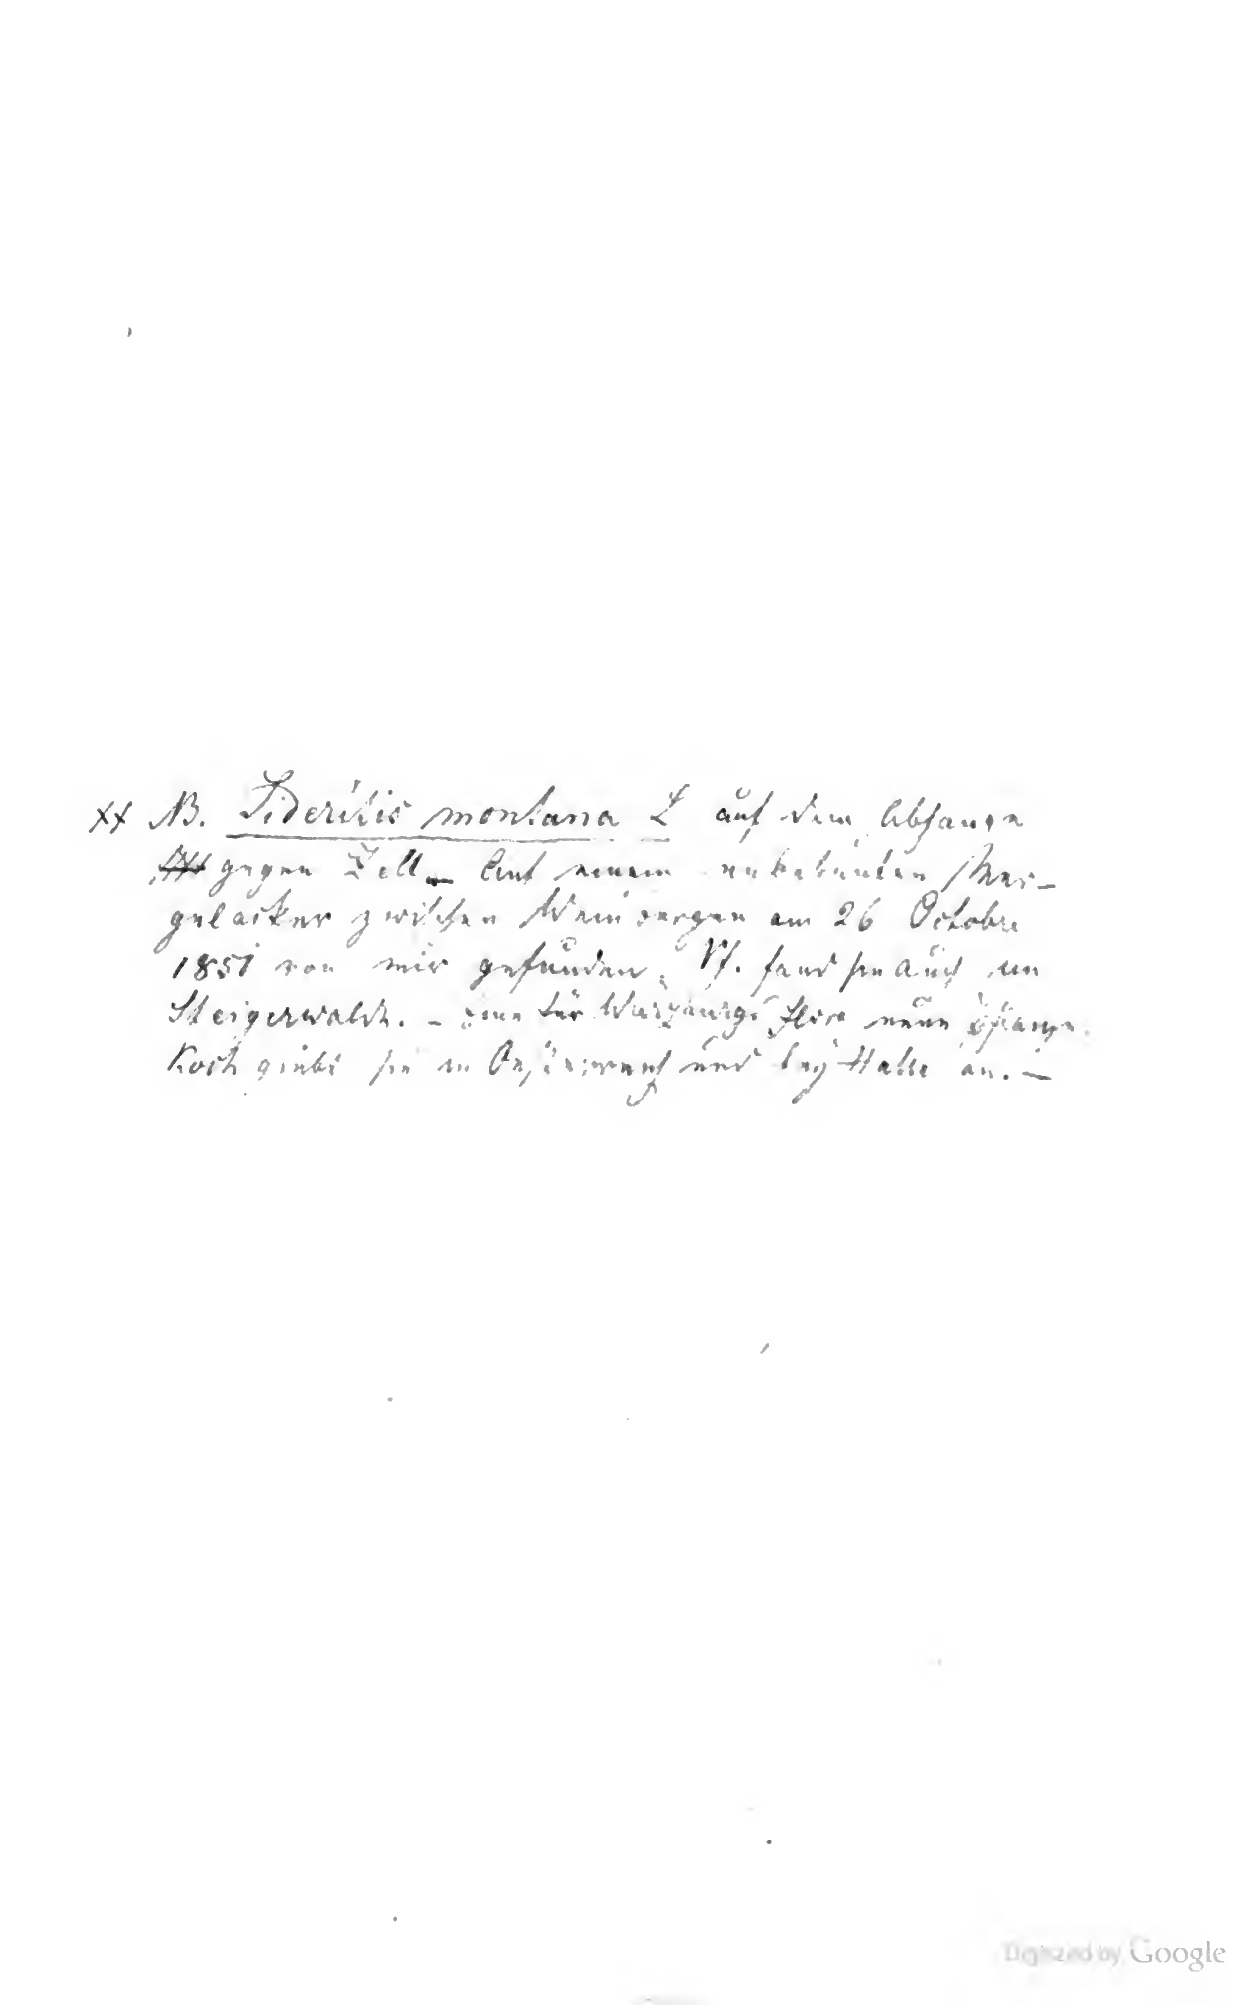 xx NB. Sideritis montana L auf dem Abhange
gegen Zell — Auf einem unbebauten Mer-
gelacker zwischen Weinbergen am 26 October
1851 von mir gefunden. fand sie auch im
Steigerwalde. – Eine für Würzburgs Flora neue Pflanze.
Koch giebt sie in Oesterreich und bey Halle an. —
Digitized by Google